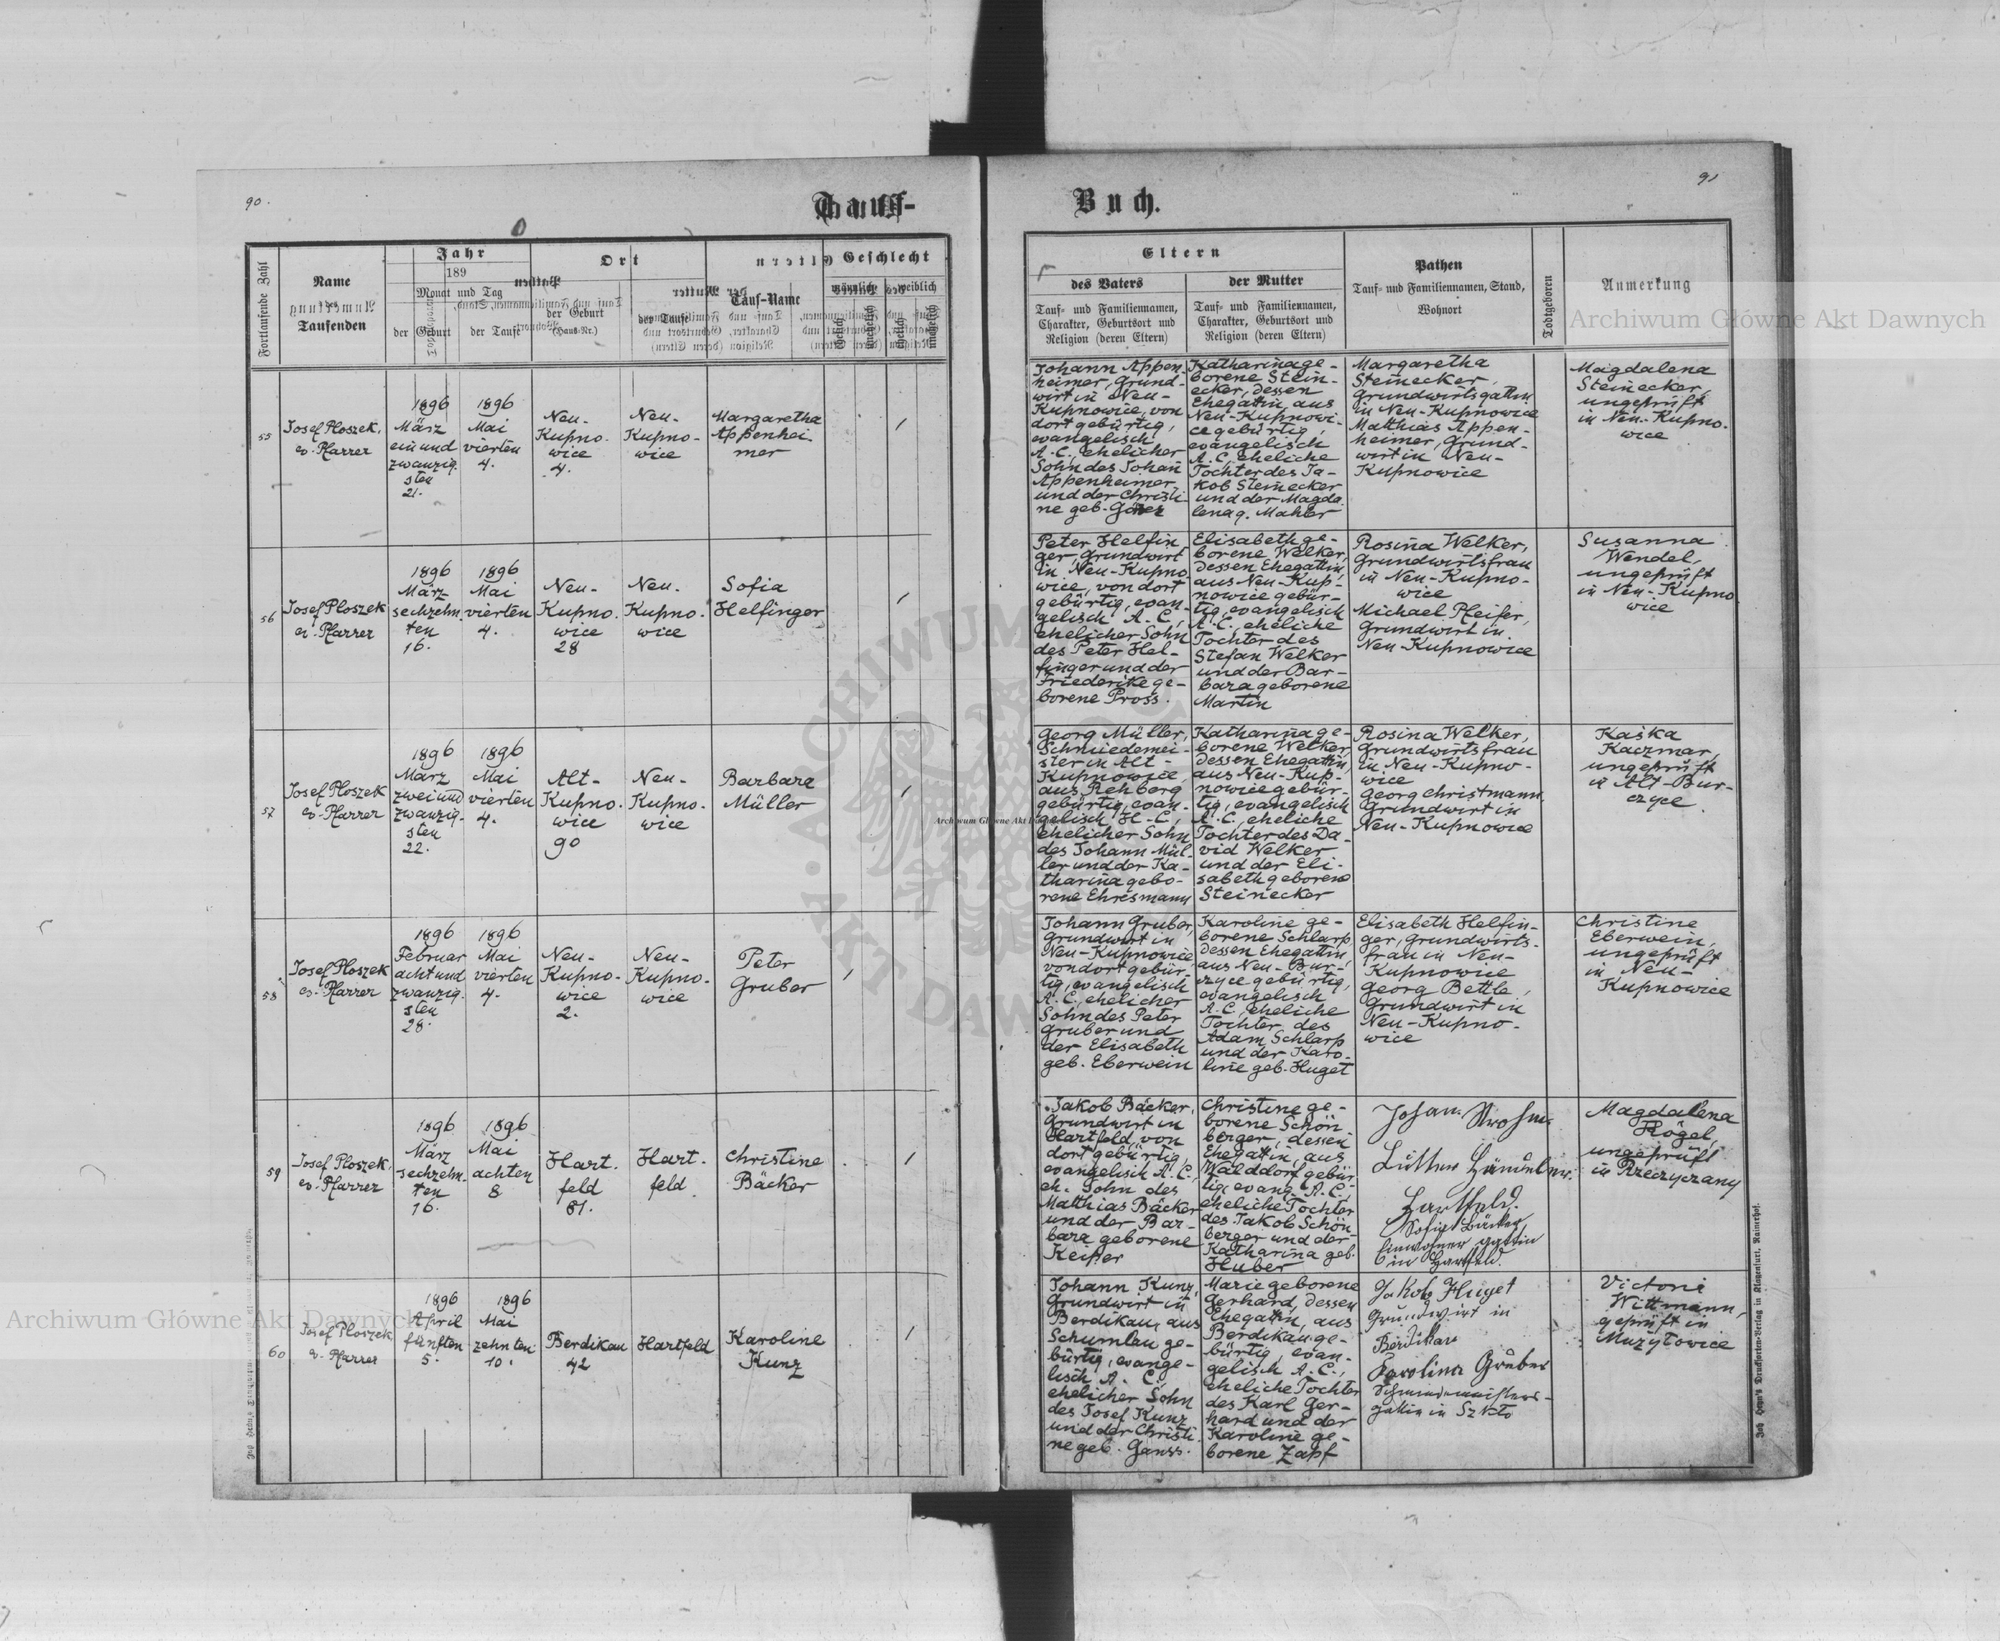 90.
Tauf-
Fortlaufende Zahl
Name
des
Taufenden
Jahr
189
Monat und Tag
der Geburt
der Taufe
Ort
der Geburt
(Haus-Nr.)
der Taufe
Tauf-Name
Geschlecht
männlich
weiblich
ehelich
unehelich
ehelich
unehelich
55
Josef Ploszek,
ev. Pfarrer
1896
März
ein und
zwanzig-
sten
21.
1896
Mai
vierten
4.
Neu-
Kupno-
wice
4.
Neu-
Kupno-
wice
Margaretha
Appenhei-
mer
56
Josef Ploszek
ev. Pfarrer
1896
März
sechzehn-
ten
16.
1896
Mai
vierten
4.
Neu-
Kupno-
wice
28
Neu-
Kupno-
wice
Sofia
Helfinger
57
Josef Ploszek
ev. Pfarrer
1896
März
zwei und
zwanzig-
sten
22.
1896
Mai
vierten
4.
Alt-
Kupno-
wice
90
Neu-
Kupno-
wice
Barbara
Müller
58
Josef Ploszek
ev. Pfarrer
1896
Februar
acht und
zwanzig-
sten
28.
1896
Mai
vierten
4.
Neu-
Kupno-
wice
2.
Neu-
Kupno-
wice
Peter
Gruber
59
Josef Ploszek,
ev. Pfarrer
1896
März
sechzehn-
ten
16.
1896
Mai
achten
8
Hart-
feld
61.
Hart-
feld
Christine
Bäcker
60
Josef Ploszek
ev. Pfarrer
1896
April
fünften
5.
1896
Mai
zehnten
10.
Berdikau
42
Hartfeld
Karoline
Kunz
91
Buch.
Eltern
des Vaters
Tauf- und Familiennamen,
Charakter, Geburtsort und
Religion (deren Eltern)
der Mutter
Tauf- und Familiennamen,
Charakter, Geburtsort und
Religion (deren Eltern)
Pathen
Tauf- und Familiennamen, Stand,
Wohnort
Todtgeboren
Anmerkung
Johann Appen-
heimer, Grund-
wirt in Neu-
Kupnowice, von
dort gebürtig,
evangelisch
A. C., ehelicher
Sohn des Johann
Appenheimer
und der Christi-
ne geb.
Katharina ge-
borene Stein-
ecker, dessen
Ehegattin, aus
Neu-Kupnowi-
ce gebürtig,
evangelisch
A. C. eheliche
Tochter des Ja-
kob Steinecker
und der Magda
lena g. Mahler
Margaretha
Steinecker,
Grundwirtsgattin
in Neu-Kupnowice
Matthias Appen-
heimer, Grund-
wirt in Neu-
Kupnowice
Magdalena
Steinecker,
ungeprüft
in Neu-Kupno-
wice
Peter Helfin
ger, Grundwirt
in Neu-Kupno
wice, von dort
gebürtig, evan-
gelisch A. C.,
ehelicher Sohn
des Peter Hel-
finger und der
Friederike ge-
borene Pross.
Elisabeth ge-
borene Welker,
dessen Ehegattin,
aus Neu-Kup-
nowice gebür-
tig, evangelisch
A. C., eheliche
Tochter des
Stefan Welker
und der Bar-
bara geborene
Martin
Rosina Welker,
Grundwirtsfrau
in Neu-Kupno-
wice
Michael Pfeifer,
Grundwirt in
Neu-Kupnowice
Susanna
Wendel,
ungeprüft
in Neu-Kupno
wice
Georg Müller,
Schmiedemei-
ster in Alt-
Kupnowice,
aus Rehberg
gebürtig, evan-
gelisch H. C.,
ehelicher Sohn
des Johann Mül-
ler und der Ka-
tharina gebo-
rene Ehresmann
Katharina ge-
borene Welker,
dessen Ehegattin,
aus Neu-Kup-
nowice gebür-
tig, evangelisch
A. C., eheliche
Tochter des Da-
vid Welker
und der Eli-
sabeth geborene
Steinecker
Rosina Welker,
Grundwirtsfrau
in Neu-Kupno-
wice
Georg Christmann,
Grundwirt in
Neu-Kupnowice
Kaśka
Kaczmar,
ungeprüft
in Alt-Bur-
czyce.
Johann Gruber,
Grundwirt in
Neu-Kupnowice
von dort gebür-
tig, evangelisch
A. C., ehelicher
Sohn des Peter
Gruber und
der Elisabeth
geb. Eberwein
Karoline ge-
borene Schlarp,
dessen Ehegattin,
aus Neu-Bur-
czyce gebürtig,
evangelisch
A. C., eheliche
Tochter des
Adam Schlarp
und der Karo-
line geb. Huget
Elisabeth Helfin-
ger, Grundwirts-
frau in Neu-
Kupnowice
Georg Bettle,
Grundwirt in
Neu-Kupno-
wice
Christine
Eberwein,
ungeprüft
in Neu-
Kupnowice
Jakob Bäcker,
Grundwirt in
Hartfeld, von
dort gebürtig,
evangelisch A. C.,
eh. Sohn des
Matthias Bäcker
und der Bar-
bara geborene
Keiper
Christine ge-
borene Schön
berger, dessen
Ehegattin, aus
Walddorf gebür
tig, evang. A. C.,
eheliche Tochter
des Jakob Schön-
berger und der
Katharina geb.
Huber
Johann
Hartfeld.
Sofie Bäcker,
Einwohner gattin
in Hartfeld.
Magdalena
Rögel,
ungeprüft
in Rzeczyczany
Johann Kunz,
Grundwirt in
Berdikau, aus
Schumlau ge-
bürtig, evange-
lisch A. C.,
ehelicher Sohn
des Josef Kunz
und der Christi-
ne geb. Ganss.
Marie geborene
Gerhard, dessen
Ehegattin, aus
Berdikau ge-
bürtig, evan-
gelisch A. C.,
eheliche Tochter
des Karl Ger-
hard und der
Karoline ge-
borene Zapf
Jakob Huget
Grundwirt in
Berdikau
Karolina Gruber
Schmiedmeisters-
gattin in
Victori
Wittmann,
geprüft in
Mużyłowice
Joh. Heyn's Drucksorten-Verlag in Klagenfurt, Rainerhof.
Archiwum Główne Akt Dawnych
Archiwum Główne Akt Dawnych
Archiwum Główne Akt Dawnych
ARCHIWUM
AKT DAWNYCH